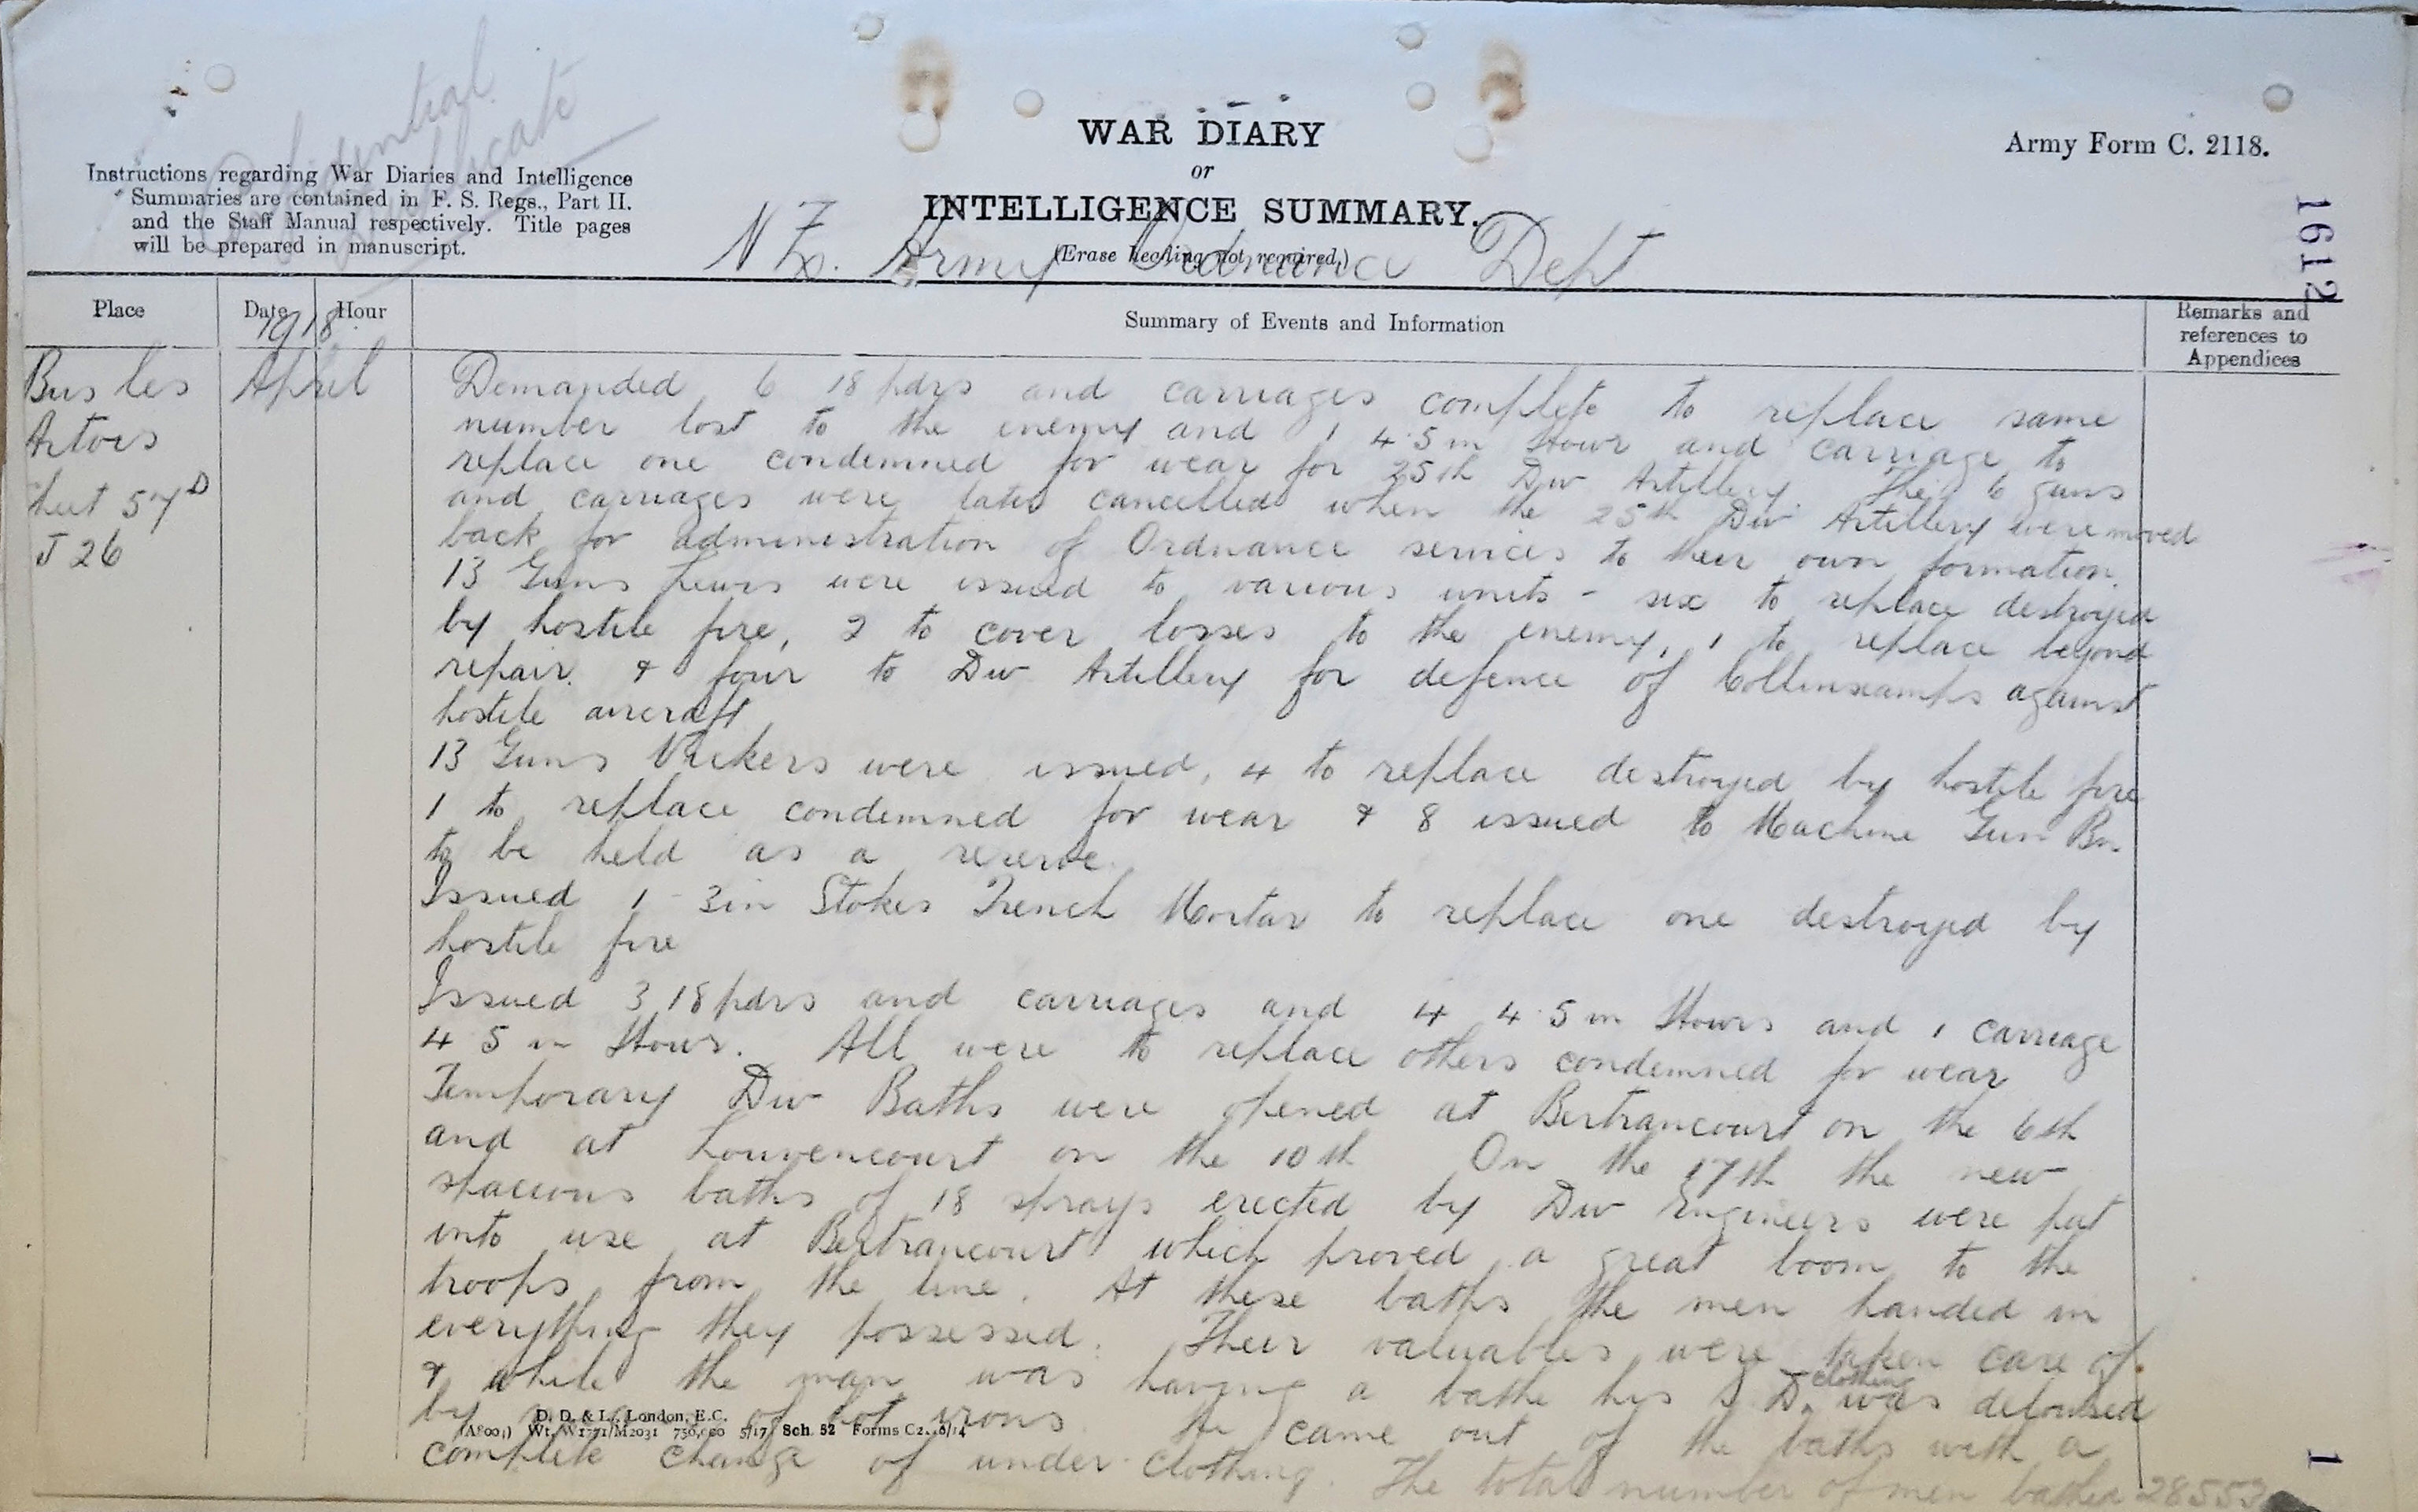 Confidential
Duplicate
Instructions regarding War Diaries and Intelligence
Summaries are contained in F. S. Regs., Part II.
and the Staff Manual respectively. Title pages
will be prepared in manuscript.
WAR DIARY
or
INTELLIGENCE SUMMARY.
(Erase heading not required.)
N Z. Army Ordnance Dept
Army Form C. 2118.
1612
Place
Date
Hour
1918
Summary of Events and Information
Remarks and
references to
Appendices
Bus les
Artois
Sheet 57D
J 26
April
Demanded 6 18 pdrs and carriages complete to replace same
number lost to the enemy and 1 4.5 in Howr and carriage to
replace one condemned for wear for 25th Div Artillery. The 6 guns
and carriages were later cancelled when the 25th Div Artillery were moved
back for administration of Ordnance services to their own formation.
13 Guns Lewis were issued to various units - six to replace destroyed
by hostile fire, 2 to cover losses to the enemy, 1 to replace beyond
repair. & four to Div Artillery for defence of Collinscamps against
hostile aircraft
13 Guns Vickers were issued, 4 to replace destroyed by hostile fire
1 to replace condemned for wear & 8 issued to Machine Gun Bn.
to be held as a reserve.
Issued 1 - 3in Stokes Trench Mortar to replace one destroyed by
hostile fire
Issued 3 18 pdrs and carriages and 4 4.5 in Howrs and 1 carriage
4 5 in Howr. All were to replace others condemned for wear
Temporary Div Baths were opened at Bertrancourt on the 6th
and at Louvencourt on the 10th On the 17th the new
spacious baths of 18 sprays erected by Div Engineers were put
into use at Bertrancourt which proved a great boom to the
troops from the line. At these baths the men handed in
everything they possessed. Their valuables were taken care of.
& while the man was having a bathe his S D. clothing was deloused
by means of hot irons. He came out of the baths with a
complete change of under clothing. The total number of men bathed 28553
D. D. & L., London, E.C.
(A8001) Wt. W1771/M2031 750,000 5/17 Sch. 52 Forms C2118/14
1